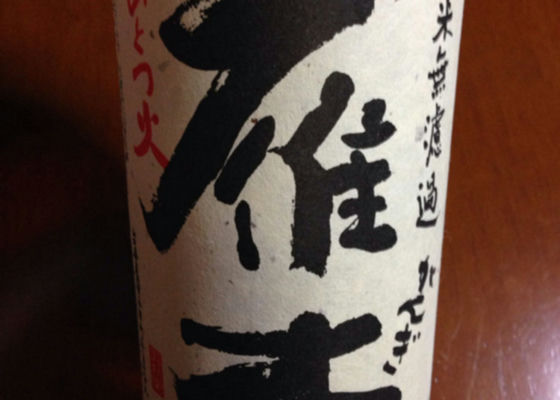 米無濾過 がんぎ
雁木
ひとつ火